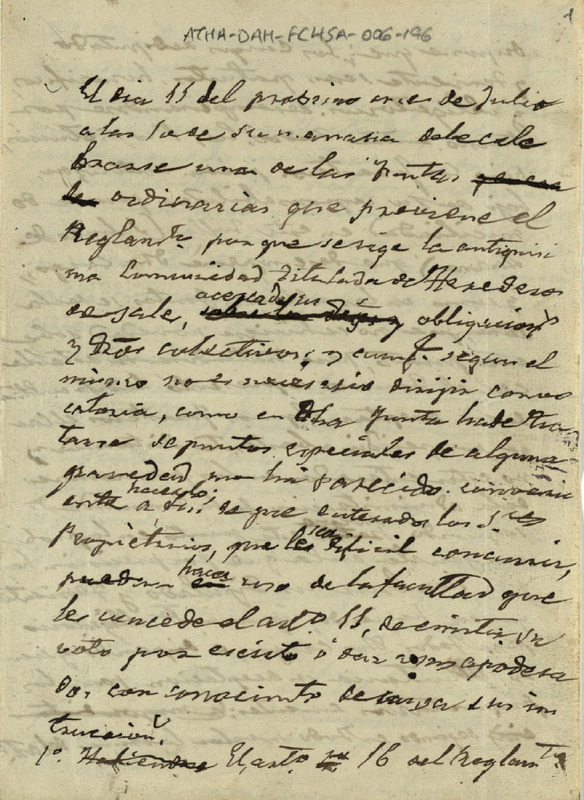 1
ATHA-DAH-FCHSA-006-196
El dia 11 del proximo mes de Julio
a las 10 de su mañana debe cele
brarse una de las Juntas genera
les ordinarias que previene el
Reglamto porque se rige la antiquisi
ma Comunidad titulada de Herederos
de sale, acerca de sus obligacions
y dros colectivos; y aunq. segun el
mismo no es necesario dirijir convo
catoria, como en dha Junta ha de tra
tarse de puntos especiales de alguna
gravedad me ha parecido conveni
ente hacerlo; á fin de que enterados los Sres
Propietarios, que les sea dificil concurrir,
puedan hacer uso de la facultad que
les concede el arto 11, de emitir su
voto por escrito ó dar apodera
do, con conocimto de causa sus ins
truccions.
1o. Habiendose El arto 16 del Reglamto